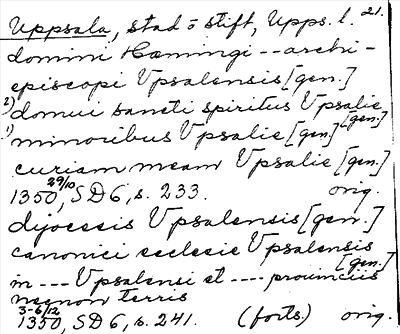 Uppsala, stad o stift, Upps. l. 21.
domini Hemingi -- archi-
episcopi Vpsalensis [gen.]
2) domui sancti spiritus Vpsalie [gen.]
1) minoribus Vpsalie [gen.]
curiam meam Vpsalie [gen.]
1350 29/10, SD 6, s. 233. orig.
dyocesis Vpsalensis [gen.]
canonici ecclesie Vpsalensis [gen.]
in --- Vpsalensi et ---- prouinciis
necnon terris
1350 3-6/12, SD 6, s. 241. (forts.) orig.